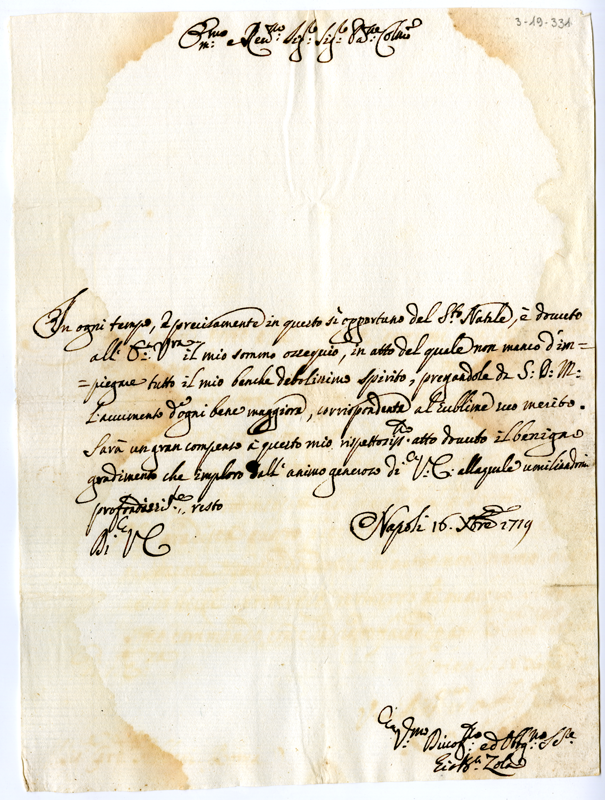 3-19-331
Em:mo e Rev:mo Sig:r Sig:r Pa:ne Col:mo
In ogni tempo, e precisamente in questo sì opportuno del S:to Natale, è dovuto
all' E:a Vra il mio sommo ossequio, in atto del quale non manco d'im=
=piegare tutto il mio benche debolissimo spirito, pregandole da S: D: M:
l'aumento d'ogni bene maggiore, corrispondente al sublime suo merito.
Sarà un gran compenso à questo mio rispettosiss:mo atto dovuto il benigno
gradimento che imploro dall' animo generoso di V:E: alla quale umiliandomi
profondissi:te, resto
Di V E
Napoli 16. Xbre 1719
V:mo Divot:mo ed Obblig:mo Se:re